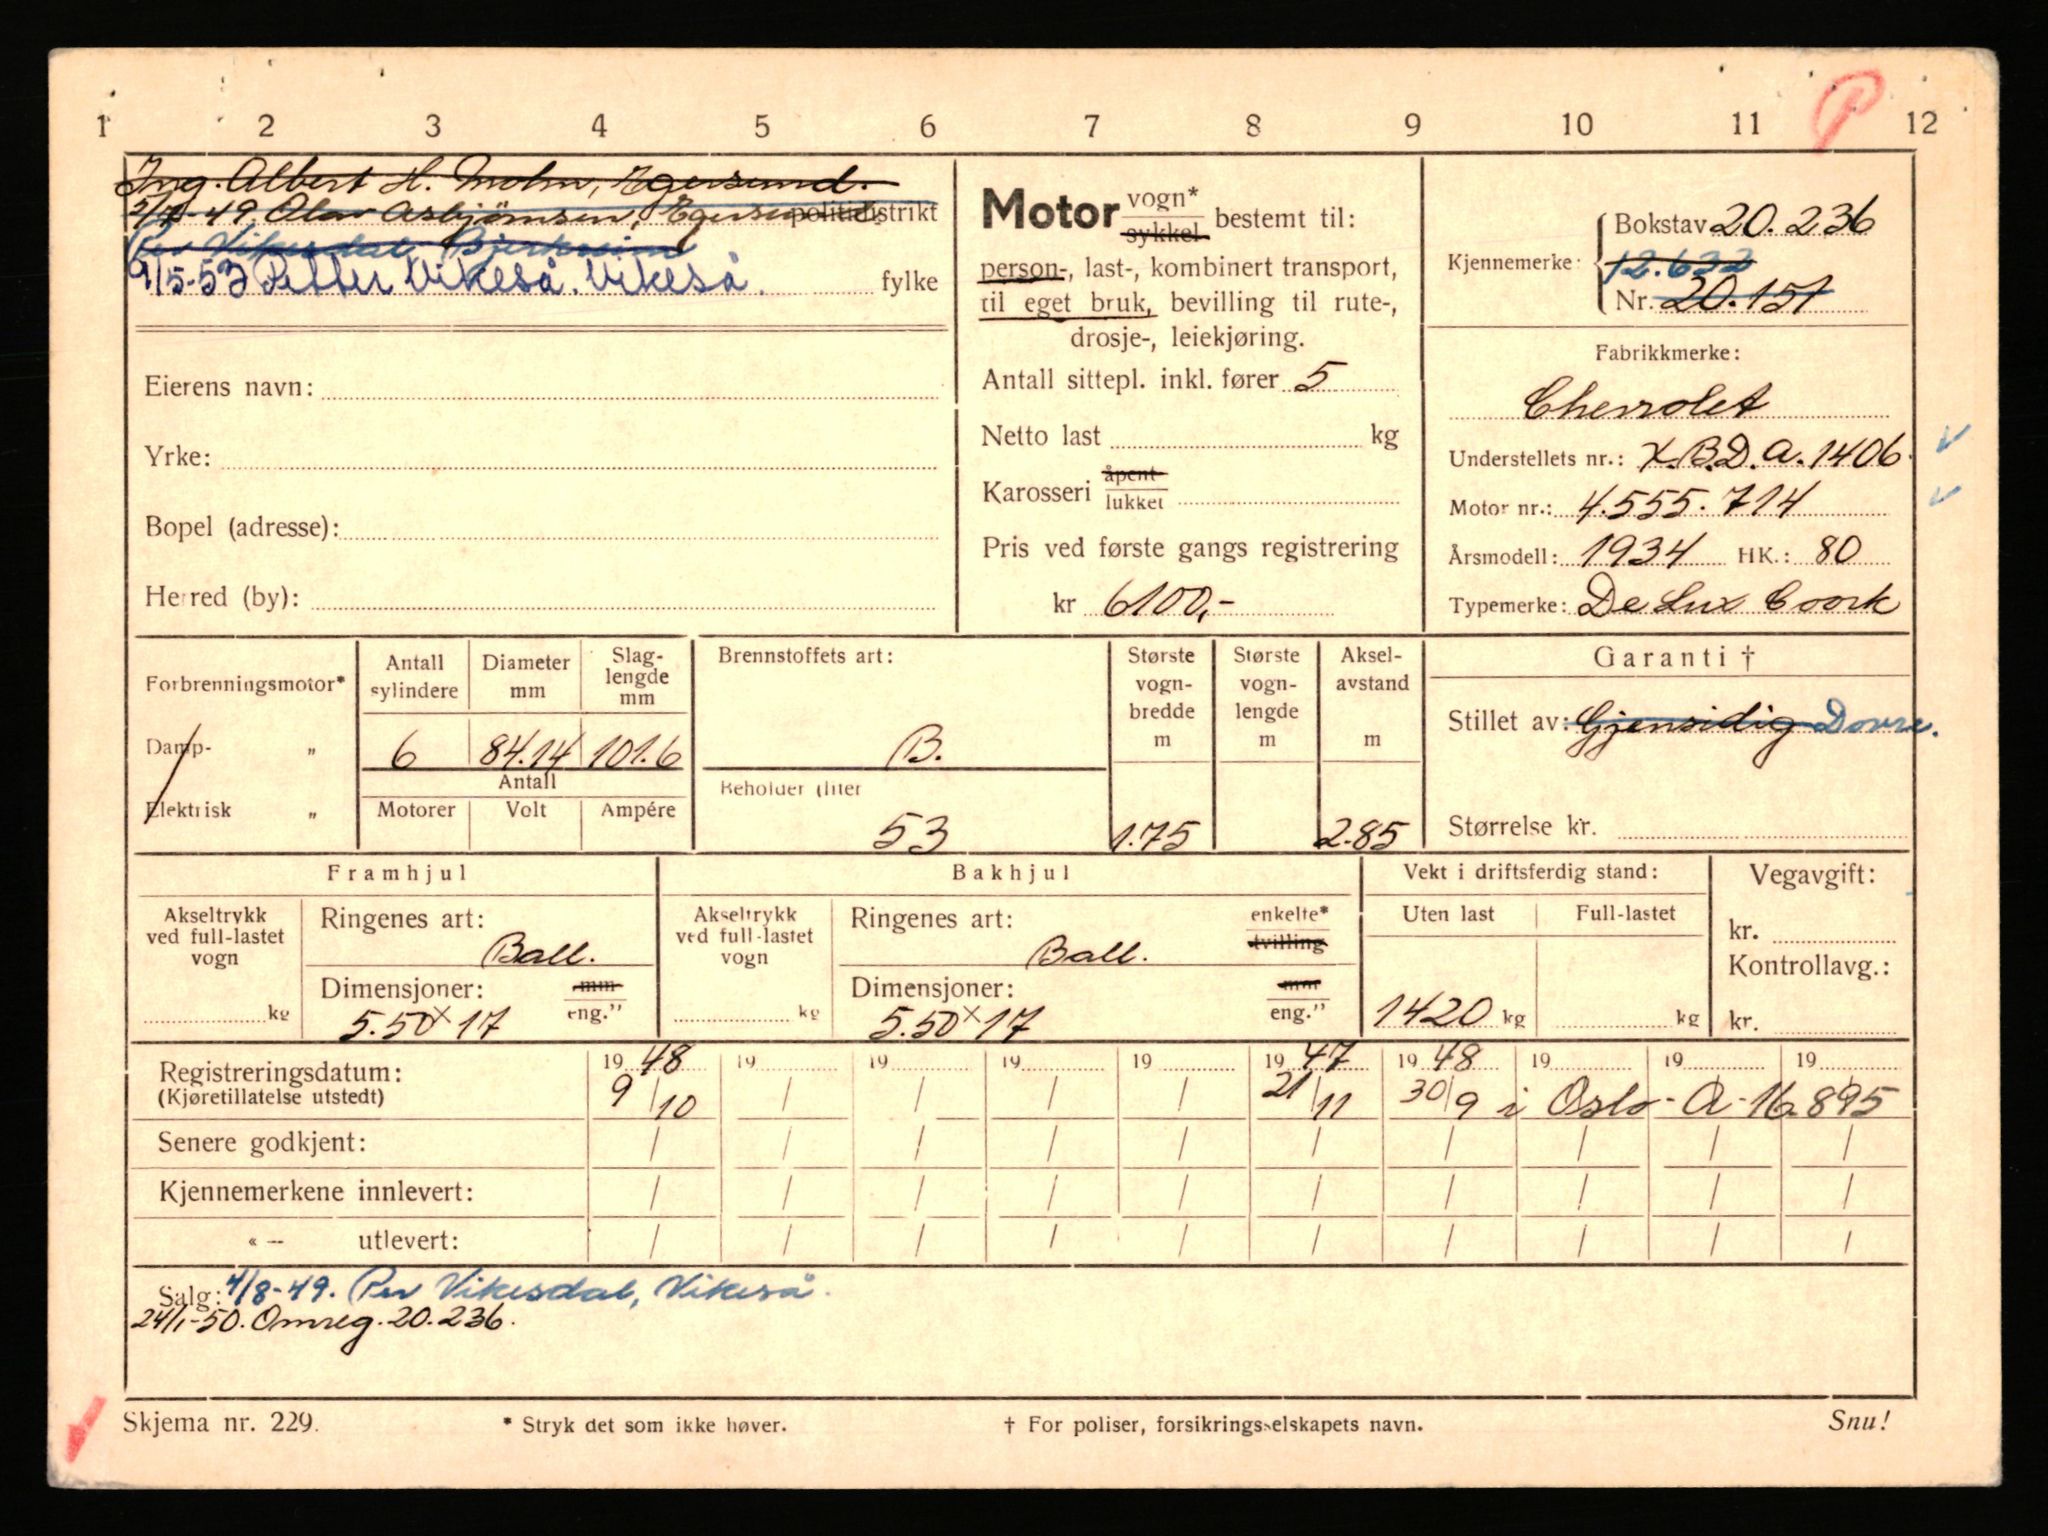 1 2 3 4 5 6 7 8 9 10 11 12
P
Ing. Albert H. Mohn, Egersund.
5/4-49. Olav Asbjørnsen, Egersund politidistrikt
Per Vikesdal Bjerkreim
9/5-53 Petter Vikeså. Vikeså. fylke
Eierens navn:
Yrke:
Bopel (adresse):
Herred (by):
Motor vogn* sykkel bestemt til:
person-, last-, kombinert transport,
til eget bruk, bevilling til rute-,
drosje-, leiekjøring.
Antall sittepl. inkl. fører 5
Netto last kg
Karosseri åpent lukket
Pris ved første gangs registrering
kr 6100,-
Kjennemerke: Bokstav 20.236
12.632
Nr. 20.151
Fabrikkmerke:
Chevrolet
Understellets nr.: X.B.D.A.1406.
Motor nr.: 4.555.714
Årsmodell: 1934 HK.: 80
Typemerke: De Lux Coach
Forbrenningsmotor*
Damp- „
Elektrisk „
Antall sylindere
Diameter mm
Slag-lengde mm
6 84.14 101.6
Antall
Motorer Volt Ampére
Brennstoffets art:
B.
Beholder (liter
53
Største vogn-bredde m
1.75
Største vogn-lengde m
Aksel-avstand m
2.85
Garanti †
Stillet av: Gjensidig Dovre.
Størrelse kr.
Framhjul
Akseltrykk ved full-lastet vogn
kg
Ringenes art:
Ball.
Dimensjoner: mm eng."
5.50 x 17
Bakhjul
Akseltrykk ved full-lastet vogn
kg
Ringenes art: enkelte* tvilling
Ball.
Dimensjoner: mm eng."
5.50 x 17
Vekt i driftsferdig stand:
Uten last Full-lastet
1420 kg kg
Vegavgift:
kr.
Kontrollavg.:
kr.
Registreringsdatum: 19 48 19 19 19 19 19 47 19 48 19 19 19
(Kjøretillatelse utstedt) 9/10 / / / / 21/11 30/9 i Oslo - A-16895
Senere godkjent: / / / / / / / / / /
Kjennemerkene innlevert: / / / / / / / / / /
« — utlevert: / / / / / / / / / /
Salg: 4/8-49. Per Vikesdal, Vikeså.
24/1-50. Omreg. 20.236.
Skjema nr. 229. * Stryk det som ikke høver. † For poliser, forsikringsselskapets navn. Snu!